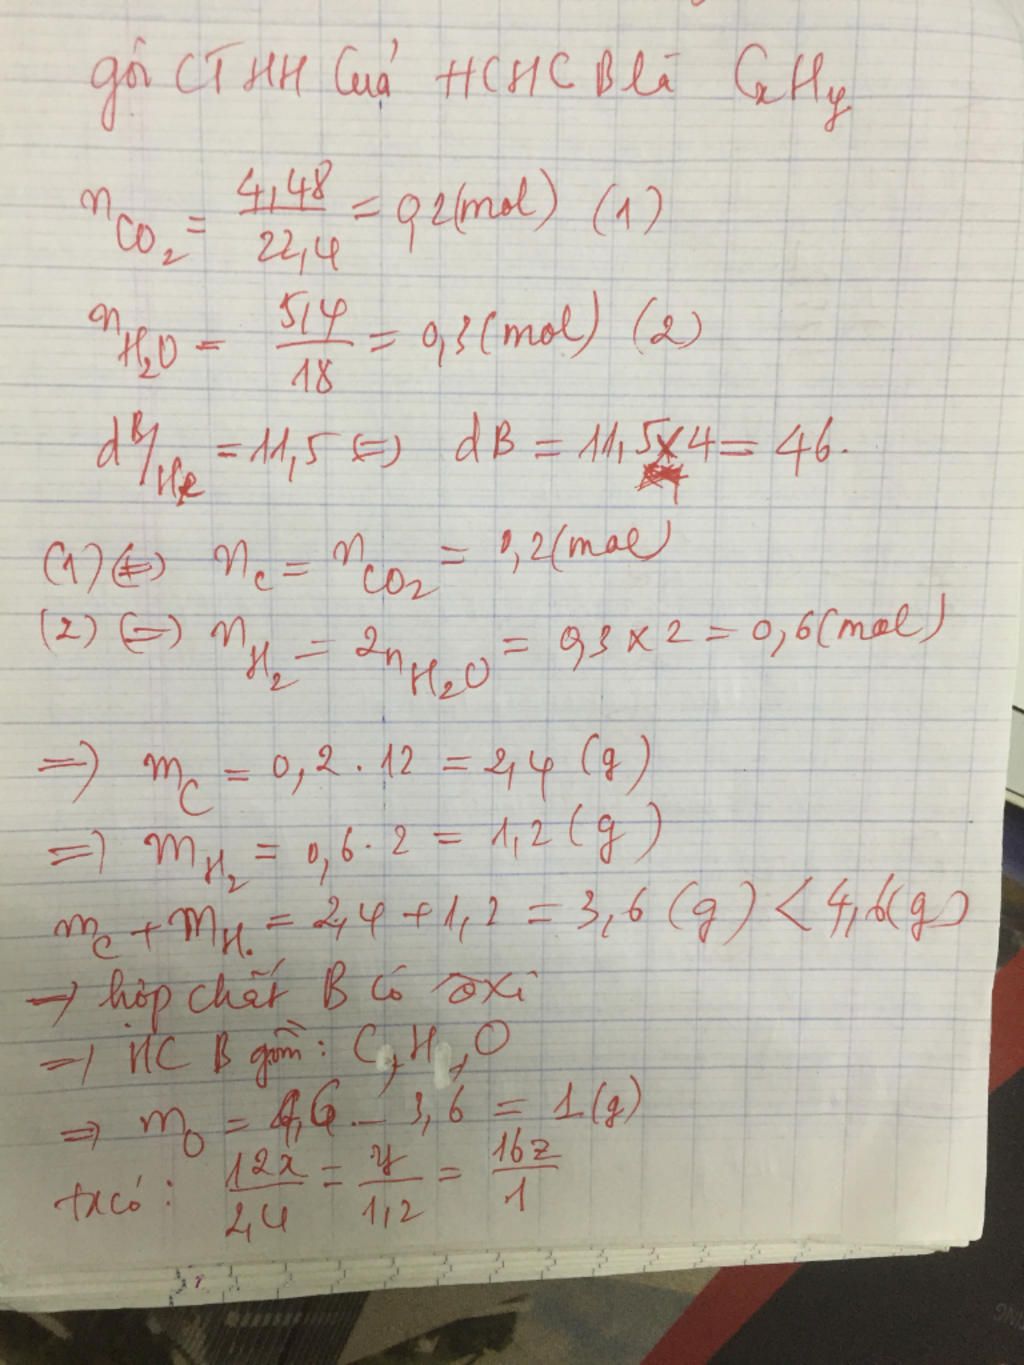 gọi CTHH của HCHC B là CxHy
nCO2 = 4,48/22,4 = 0,2(mol) (1)
nH2O = 5,4/18 = 0,3(mol) (2)
dB/He = 11,5 (=) dB = 11,5x4 = 46.
(1) (=) nC = nCO2 = 0,2(mol)
(2) (=) nH2 = 2nH2O = 0,3 x 2 = 0,6(mol)
=) mC = 0,2 . 12 = 2,4 (g)
=) mH2 = 0,6 . 2 = 1,2 (g)
mC + mH. = 2,4 + 1,2 = 3,6 (g) < 4,6(g)
=) hợp chất B có oxi
=) HC B gồm: C, H, O
=> mO = 4,6 - 3,6 = 1 (g)
ta có: 12x/2,4 = y/1,2 = 16z/1